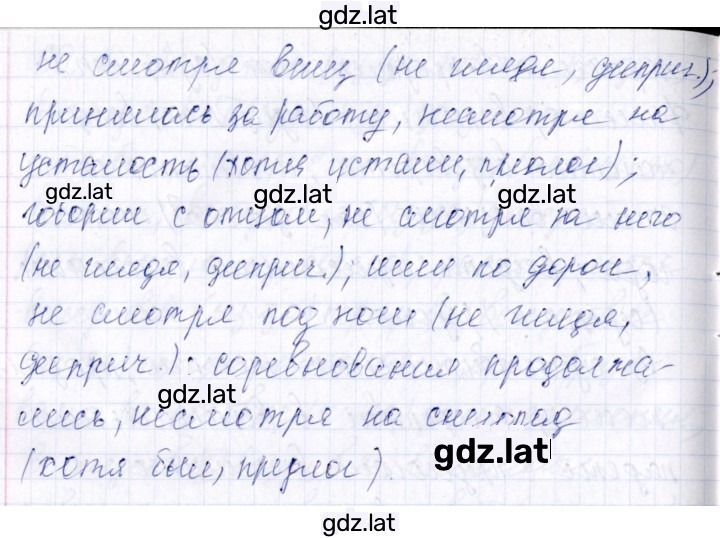 gdz.lat
не смотря вниз (не глядя, дееприч.);
принялись за работу, несмотря на
усталость (хотя устали, предлог);
gdz.lat gdz.lat gdz.lat
говорил с отцом, не смотря на него
(не глядя, дееприч.); шли по дороге,
не смотря под ноги (не глядя,
дееприч.): соревнования продолжа-
gdz.lat
лись, несмотря на снегопад
gdz.lat
(хотя был, предлог).
gdz.lat